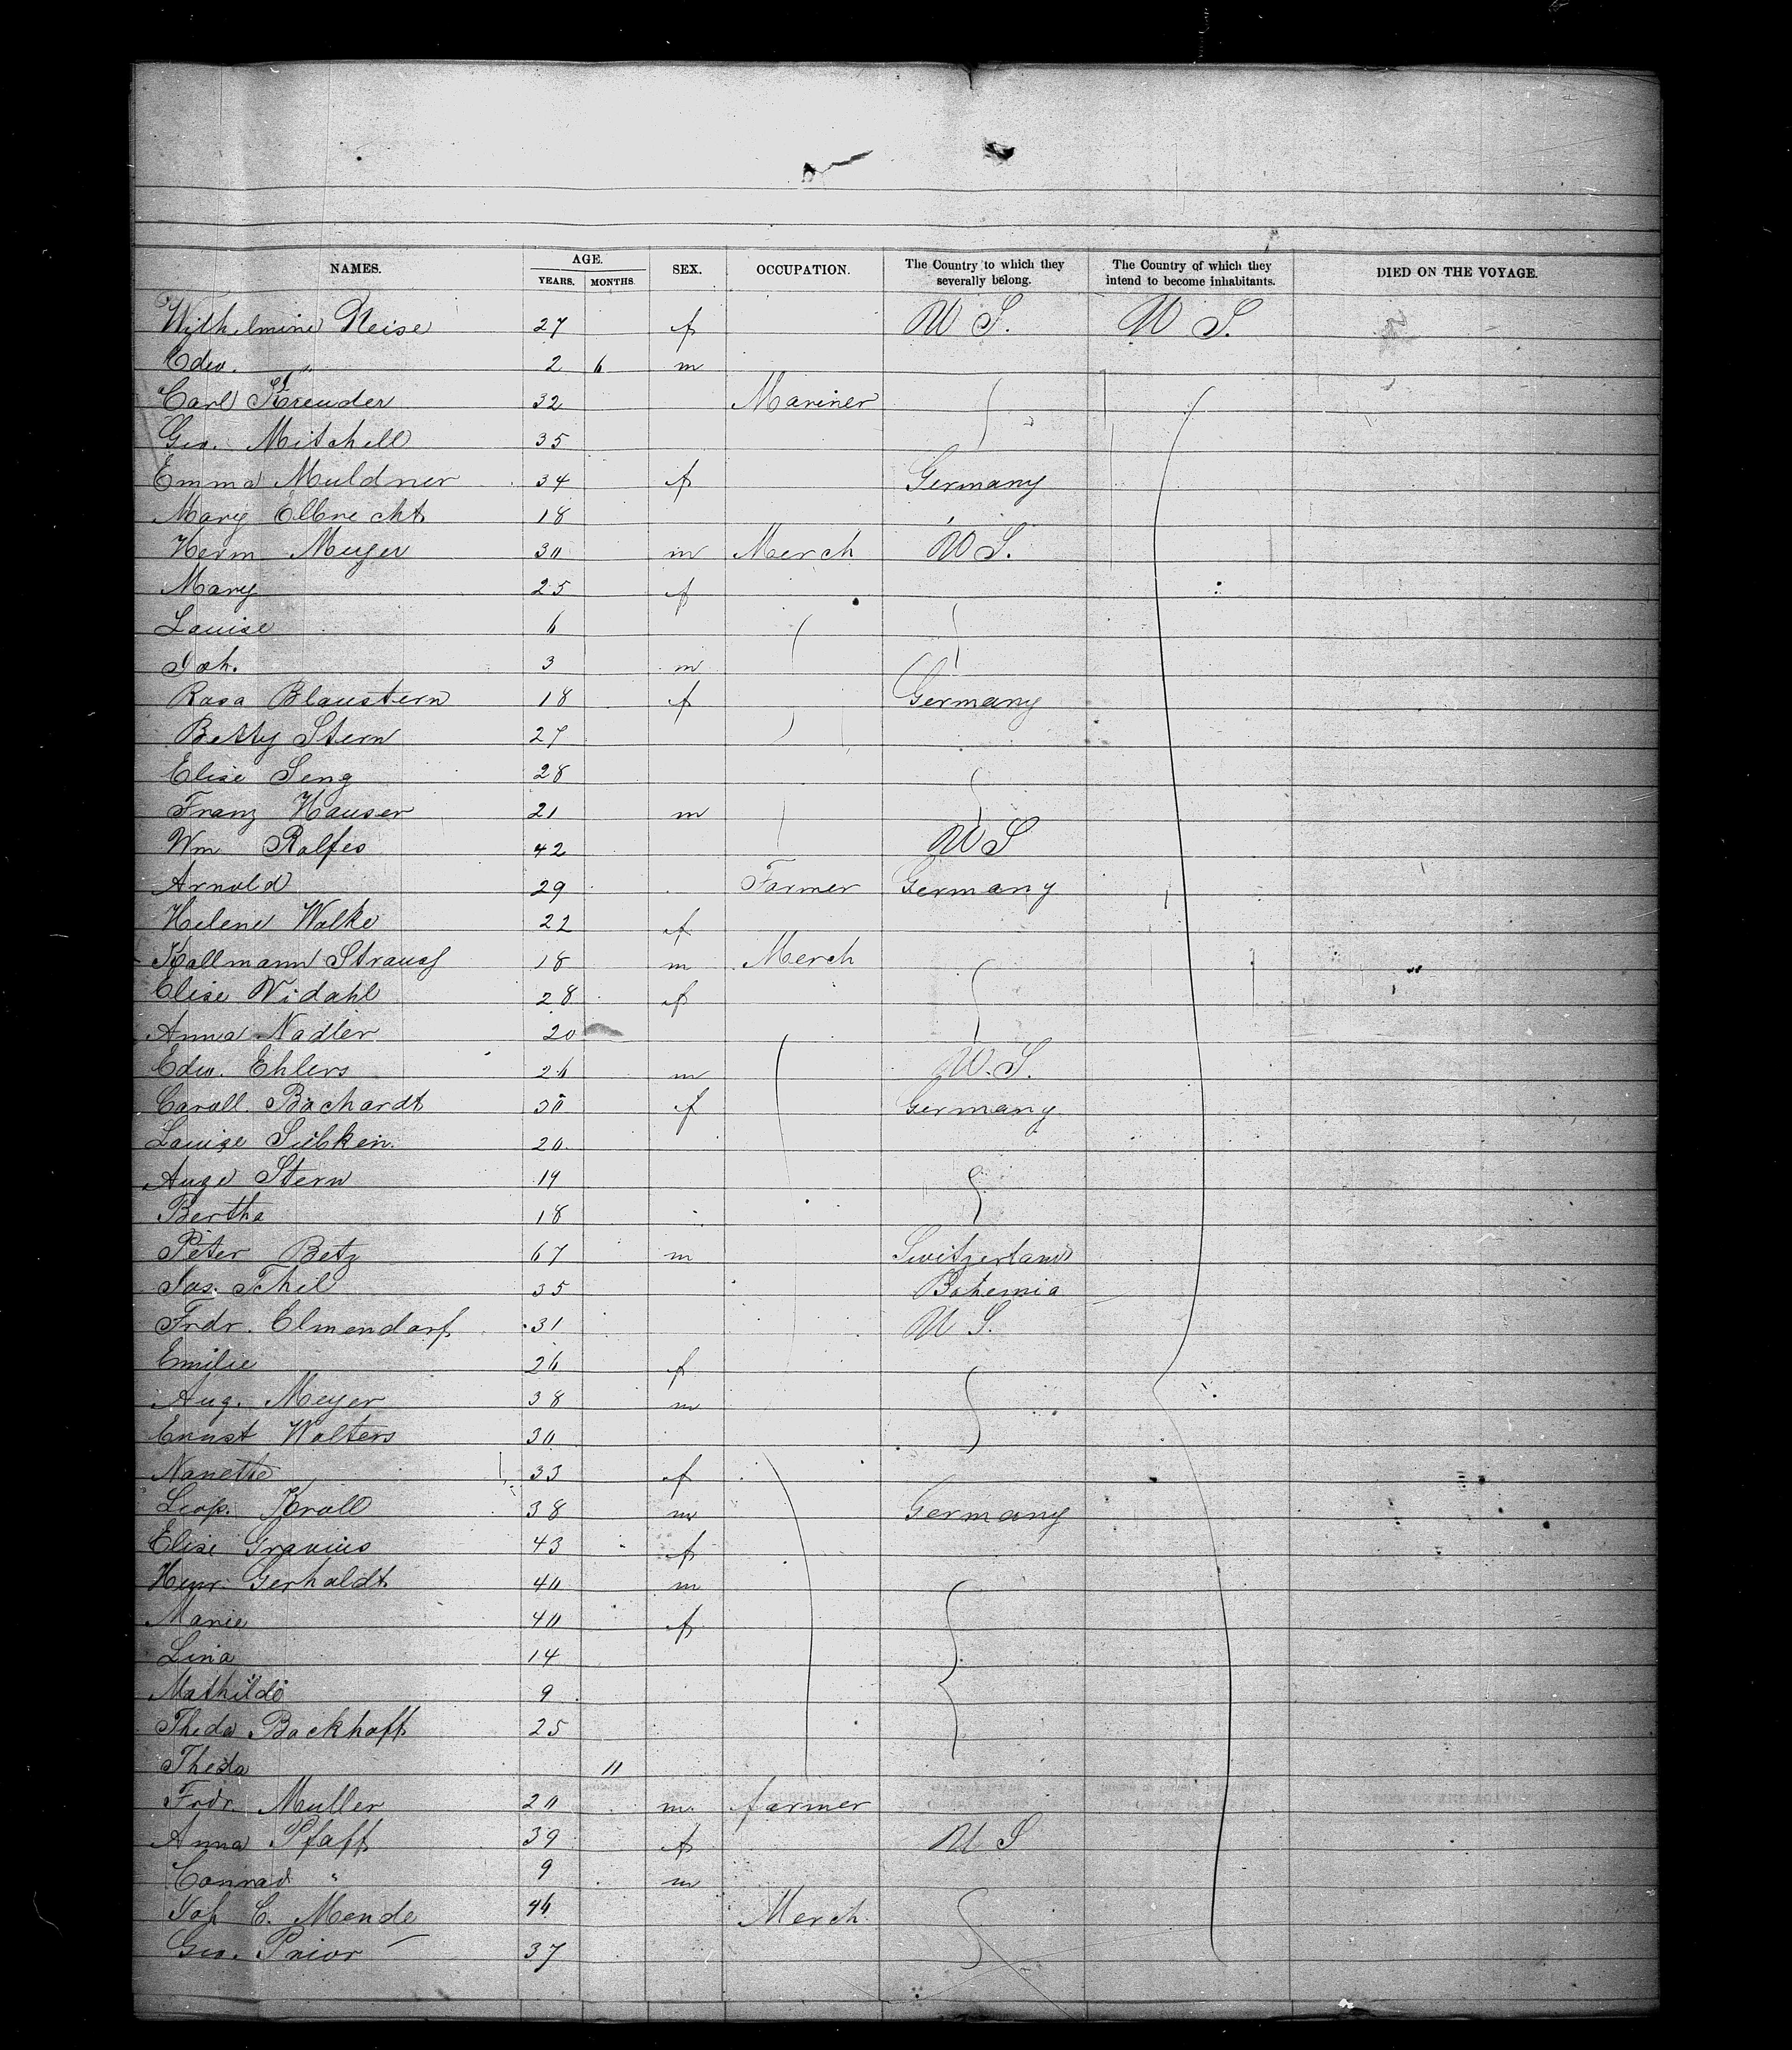 NAMES. AGE. SEX. OCCUPATION. The Country to which they severally belong. The Country of which they intend to become inhabitants. DIED ON THE VOYAGE.
YEARS. MONTHS.
Wilhelmine Neise 27 f U S. U S.
Edw. " 2 6 m
Carl Kreuder 32 Mariner
Geo. Mitchell 35
Emma Muldner 34 f Germany
Mary Elbrecht 18
Herm Meyer 30 m Merch U S.
Mary 25 f
Louise 6
Joh. 3 m
Rosa Blaustern 18 f Germany
Betty Stern 27
Elise Seng 28
Franz Hauser 21 m
Wm Rolfes 42 U S
Arnold 29 Farmer Germany
Helene Wolke 22 f
Kallmann Strauss 18 m Merch
Elise Vidahl 28 f
Anna Nadler 20
Edw. Ehlers 26 m U. S.
Caroll. Bachardt 30 f Germany
Louise Lübken. 20
Auge Stern 19
Bertha 18
Peter Betz 67 m Switzerland
Jos. Thil 35 Bohemia
Frdr. Elmendorf 31 U S.
Emilie 26 f
Aug. Meyer 38 m
Ernst Wolters 30
Nanette 33 f
Leop. Kroll 38 m Germany
Elise Gravius 43 f
Henr. Gerholdt 40 m
Marie 40 f
Lina 14
Mathilde 9
Theda Backhoff 25
Theda 11
Frdr. Muller 20 m. farmer
Anna Pfaff 39 f U S
Conrad " 9 m
Joh C. Mende 46 Merch.
Geo. Prior 37